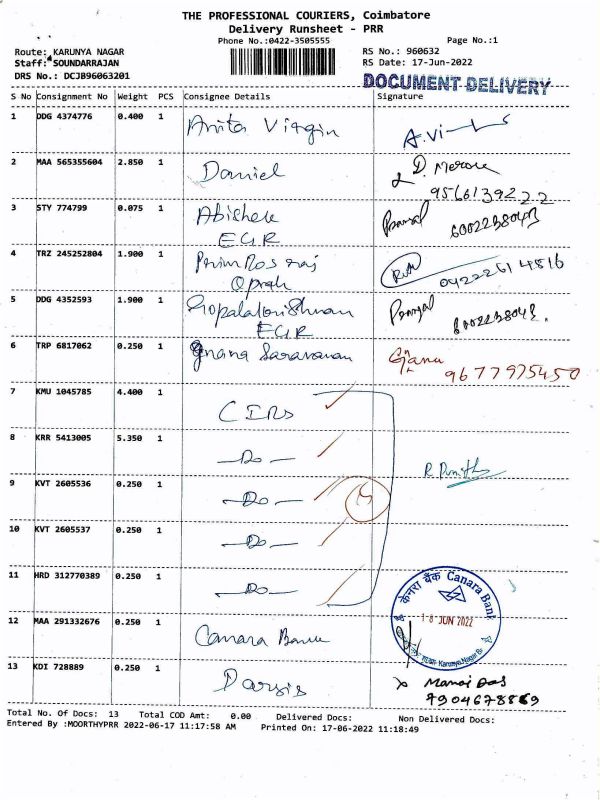 THE PROFESSIONAL COURIERS, Coimbatore
Delivery Runsheet - PRR
Phone No.:0422-3505555
Page No.:1
Route: KARUNYA NAGAR
RS No.: 960632
Staff: SOUNDARRAJAN
RS Date: 17-Jun-2022
DRS No.: DCJB96063201
DOCUMENT DELIVERY
S No Consignment No Weight PCS Consignee Details Signature
1 DDG 4374776 0.400 1 Anita Virgin A.Vi
2 MAA 565355604 2.850 1 Daniel D.
9566139222
3 STY 774799 0.075 1 Abishek
EGR
4 TRZ 245252804 1.900 1 Ruth 04222614816
5 DDG 4352593 1.900 1 Gopalakrishnan
EGR
6 TRP 6817062 0.250 1 Gnana Saravanan Gjanu
9677975450
7 KMU 1045785 4.400 1 CIRS
8 KRR 5413005 5.350 1 -Do-
R. Punith
9 KVT 2605536 0.250 1 -Do-
10 KVT 2605537 0.250 1 -Do-
11 HRD 312770389 0.250 1 -Do-
केनरा बैंक Canara Bank
18 JUN 2022
Karunya Nagar Br
12 MAA 291332676 0.250 1 Canara Bank
13 KDI 728889 0.250 1 Darsis Manoj Das
7904678869
Total No. Of Docs: 13 Total COD Amt: 0.00 Delivered Docs: Non Delivered Docs:
Entered By :MOORTHYPRR 2022-06-17 11:17:58 AM Printed On: 17-06-2022 11:18:49